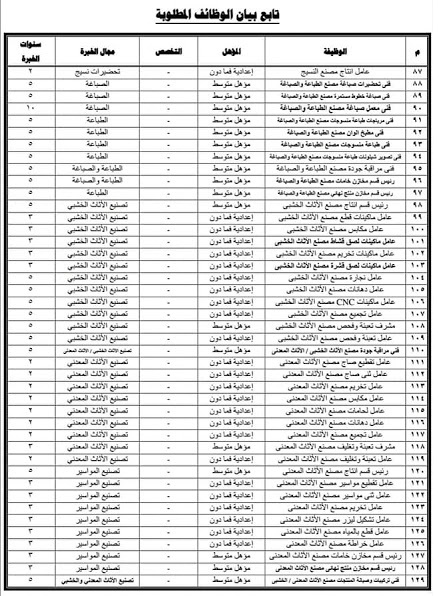 تابع بيان الوظائف المطلوبة
م الوظيفة المؤهل التخصص مجال الخبرة سنوات الخبرة
٨٧ عامل انتاج مصنع النسيج إعدادية فما دون - تحضيرات نسيج ٢
٨٨ فني تحضيرات صباغة مصنع الطباعة والصباغة مؤهل متوسط - الصباغة ٥
٨٩ فني صباغة خطوط مستمرة مصنع الطباعة والصباغة مؤهل متوسط - الصباغة ٥
٩٠ فني معمل صباغة مصنع الطباعة والصباغة مؤهل متوسط - الصباغة ١٠
٩١ فني طباعة منسوجات مصنع الطباعة والصباغة مؤهل متوسط - الطباعة ٥
٩٢ فني مطبخ الوان مصنع الطباعة والصباغة مؤهل متوسط - الطباعة ٥
٩٣ فني طباعة منسوجات مصنع الطباعة والصباغة مؤهل متوسط - الطباعة ٥
٩٤ فني تصوير شبلونات طباعة مصنع الطباعة والصباغة مؤهل متوسط - الطباعة ٥
٩٥ فني مراقبة جودة مصنع الطباعة والصباغة مؤهل متوسط - الطباعة والصباغة ٥
٩٦ رئيس قسم مخازن خامات مصنع الطباعة والصباغة مؤهل متوسط - الطباعة والصباغة ٥
٩٧ رئيس قسم مخازن منتج نهائى مصنع الطباعة والصباغة مؤهل متوسط - الطباعة ٥
٩٨ رئيس قسم انتاج مصنع الأثاث الخشبى مؤهل متوسط - تصنيع الأثاث الخشبي ٥
٩٩ عامل ماكينات قطع مصنع الأثاث الخشبى إعدادية فما دون - تصنيع الأثاث الخشبي ٣
١٠٠ عامل مكابس مصنع الأثاث الخشبى إعدادية فما دون - تصنيع الأثاث الخشبي ٣
١٠١ عامل ماكينات لصق قشاط مصنع الأثاث الخشبى إعدادية فما دون - تصنيع الأثاث الخشبي ٣
١٠٢ عامل ماكينات تخريم مصنع الأثاث الخشبى إعدادية فما دون - تصنيع الأثاث الخشبي ٣
١٠٣ عامل ماكينات لصق قشرة مصنع الأثاث الخشبى إعدادية فما دون - تصنيع الأثاث الخشبي ٣
١٠٤ عامل نجارة مصنع الأثاث الخشبى إعدادية فما دون - تصنيع الأثاث الخشبي ٥
١٠٥ عامل دهانات مصنع الأثاث الخشبى إعدادية فما دون - تصنيع الأثاث الخشبي ٥
١٠٦ عامل ماكينات CNC مصنع الأثاث الخشبى إعدادية فما دون - تصنيع الأثاث الخشبي ٥
١٠٧ عامل تجميع مصنع الأثاث الخشبى إعدادية فما دون - تصنيع الأثاث الخشبي ٥
١٠٨ مشرف تعبئة وفحص مصنع الأثاث الخشبى مؤهل متوسط - تصنيع الأثاث الخشبي ٥
١٠٩ عامل تعبئة وفحص مصنع الأثاث الخشبى إعدادية فما دون - تصنيع الأثاث الخشبي ٢
١١٠ فني مراقبة جودة مصنع الأثاث الخشبى / الأثاث المعدنى مؤهل متوسط - تصنيع الأثاث الخشبي / الأثاث المعدنى ٥
١١١ عامل تقطيع صاج مصنع الأثاث المعدنى إعدادية فما دون - تصنيع الأثاث المعدني ٢
١١٢ عامل ثنى صاج مصنع الأثاث المعدنى إعدادية فما دون - تصنيع الأثاث المعدني ٢
١١٣ عامل تخريم مصنع الأثاث المعدنى إعدادية فما دون - تصنيع الأثاث المعدني ٢
١١٤ عامل مكابس مصنع الأثاث المعدنى إعدادية فما دون - تصنيع الأثاث المعدني ٢
١١٥ عامل لحامات مصنع الأثاث المعدنى إعدادية فما دون - تصنيع الأثاث المعدني ٢
١١٦ عامل دهانات مصنع الأثاث المعدنى إعدادية فما دون - تصنيع الأثاث المعدني ٢
١١٧ عامل تجميع مصنع الأثاث المعدنى إعدادية فما دون - تصنيع الأثاث المعدني ٢
١١٨ مشرف تعبئة وتغليف مصنع الأثاث المعدنى مؤهل متوسط - تصنيع الأثاث المعدني ٢
١١٩ عامل تعبئة وتغليف مصنع الأثاث المعدنى إعدادية فما دون - تصنيع الأثاث المعدني ٢
١٢٠ رئيس قسم انتاج مصنع الأثاث المعدنى مؤهل متوسط - تصنيع المواسير ٥
١٢١ عامل تقطيع مواسير مصنع الأثاث المعدنى إعدادية فما دون - تصنيع المواسير ٣
١٢٢ عامل ثنى مواسير مصنع الأثاث المعدنى إعدادية فما دون - تصنيع المواسير ٣
١٢٣ عامل تخريم مصنع الأثاث المعدنى إعدادية فما دون - تصنيع المواسير ٣
١٢٤ عامل تشكيل ليزر مصنع الأثاث المعدنى إعدادية فما دون - تصنيع المواسير ٣
١٢٥ عامل قطع بالمياه مصنع الأثاث المعدنى إعدادية فما دون - تصنيع المواسير ٣
١٢٦ عامل خراطة مصنع الأثاث المعدنى إعدادية فما دون - تصنيع المواسير ٣
١٢٧ رئيس قسم مخازن خامات مصنع الأثاث المعدنى مؤهل متوسط - تصنيع المواسير ٣
١٢٨ رئيس قسم مخازن منتج نهائى مصنع الأثاث المعدنى مؤهل متوسط - تصنيع المواسير ٣
١٢٩ فني تركيبات وصيانة المنتجات مصنع الأثاث المعدنى / الخشبى مؤهل متوسط - تصنيع الأثاث المعدنى والخشبى ٥